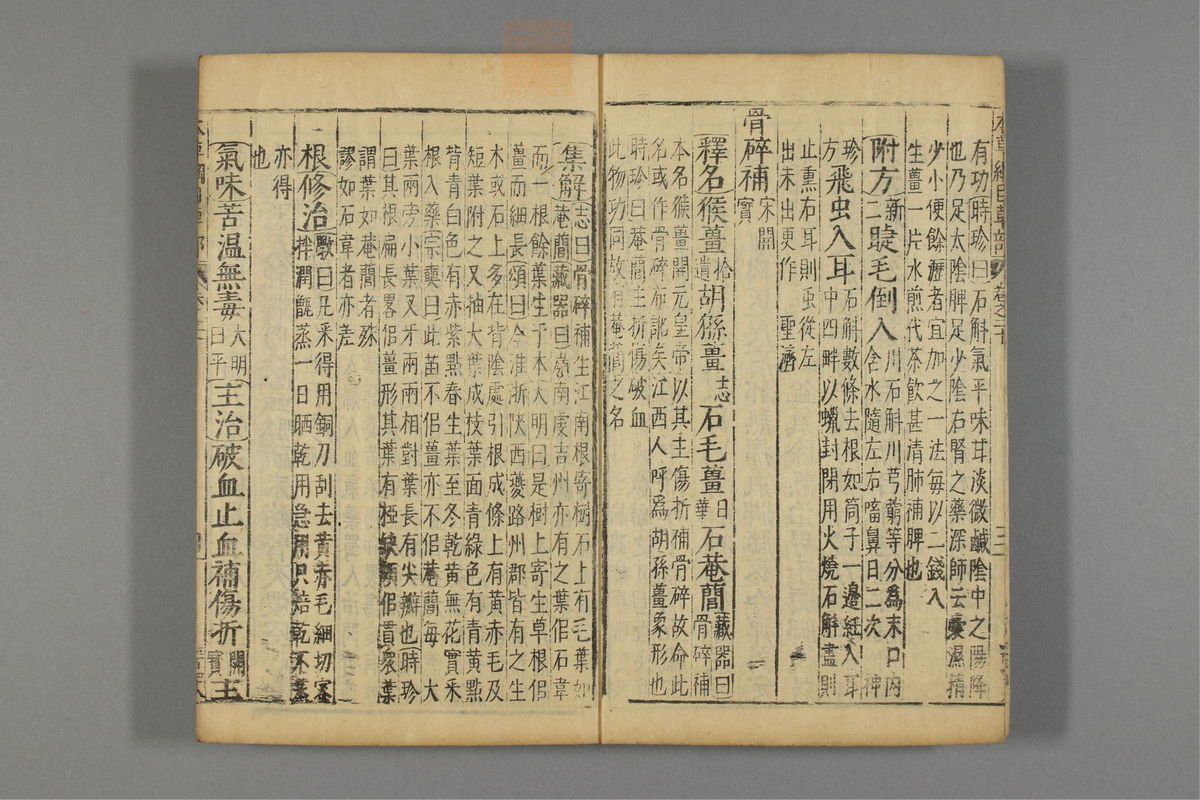 有功時珍曰石斛氣平味甘淡微鹹陰中之陽降
也乃足太陰脾足少陰右腎之藥深師云囊濕精
少小便餘瀝者宜加之一法每以二錢入
生薑一片水煎代茶飲甚清肺補脾也
附方新二睫毛倒入川石斛川芎藭等分為末口內
含水隨左右㗜鼻日二次神
珍方飛虫入耳石斛數條去根如筒子一邊紝入耳
中四畔以蠟封閉用火燒石斛盡則
止熏右耳則虫從左
出未出更作 聖濟
骨碎補宋開寶
釋名猴薑拾遺胡猻薑志石毛薑日華石菴䕡藏器曰骨碎補
本名猴薑開元皇帝以其主傷折補骨碎故命此
名或作骨碎布訛矣江西人呼爲胡孫薑象形也
時珍曰菴䕡主折傷破血
此物功同故有菴䕡之名
集解志曰骨碎補生江南根寄樹石上有毛葉如
菴䕡藏器曰嶺南虔吉州亦有之葉佀石韋
而一根餘葉生于木大明曰是樹上寄生草根佀
薑而細長頌曰今淮浙陝西夔路州郡皆有之生
木或石上多在背陰處引根成條上有黃赤毛及
短葉附之又抽大葉成枝葉面青綠色有青黃點
背青白色有赤紫點春生葉至冬乾黃無花實采
根入藥宗奭曰此苗不佀薑亦不佀菴䕡每一大
葉兩旁小葉叉牙兩兩相對葉長有尖瓣也時珍
曰其根扁長畧佀薑形其葉有椏缺頗佀貫衆葉
謂葉如菴䕡者殊
謬如石韋者亦差
根修治斆曰凡采得用銅刀刮去黃赤毛細切蜜
拌潤甑蒸一日晒乾用急用只焙乾不蒸
亦得
也
氣味苦温無毒大明曰平主治破血止血補傷折開寶主